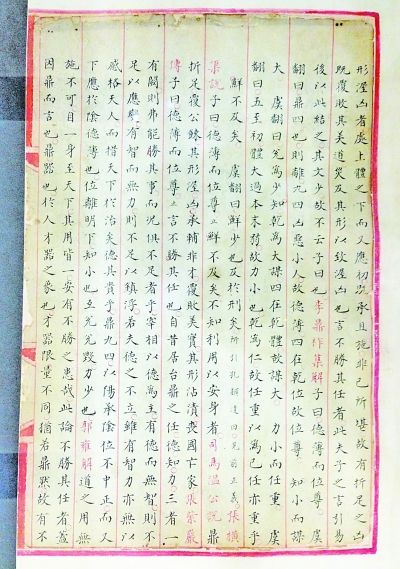 形渥凶者處上體之下而又應初既承且施非己所堪故有折足之凶
既覆敗其美道災及其形以致渥凶也言不勝其任者此夫子之言引易
後以此結之其文少故不云子曰也李鼎祚集解子曰德薄而位尊虞
翻曰鼎四也則離九四凶惡小人故德薄四在乾位故位尊 知小而謀
大 虞翻曰兌為少知乾為大謀四在乾體故謀大 力小而任重 虞
翻曰五至初體大過本末弱故力小也乾為仁故任重以為己任亦重乎
鮮不及矣 虞翻曰鮮少也及於刑矣
梁說子曰德薄而位尊至鮮不及矣不知利用以安身者司馬溫公說鼎
折足覆公餗其形渥凶承輔非才覆敗美實其形沾漬喪國亡家張紫巖
傳子曰德薄而位尊至言不勝其任也自昔居台鼎之任德知力三者一
有闕則弗能勝其事而況俱不足者乎宰相以德為主有德而無智則不
足以應變有智而無力則不足以鎮浮若夫德之不立雖有智力亦無以
感格天人而措天下於治矣德其貴乎鼎九四以陽承陰位不中正而又
下應於陰德薄也位離明下知小也互兌兌毀力少也郭雍解道之用無
施不可自一身至天下其用皆一安有不勝之患哉此論不勝其任者蓋
因鼎而言也鼎器也於人才器之象也才器限量不同猶若鼎然故有不